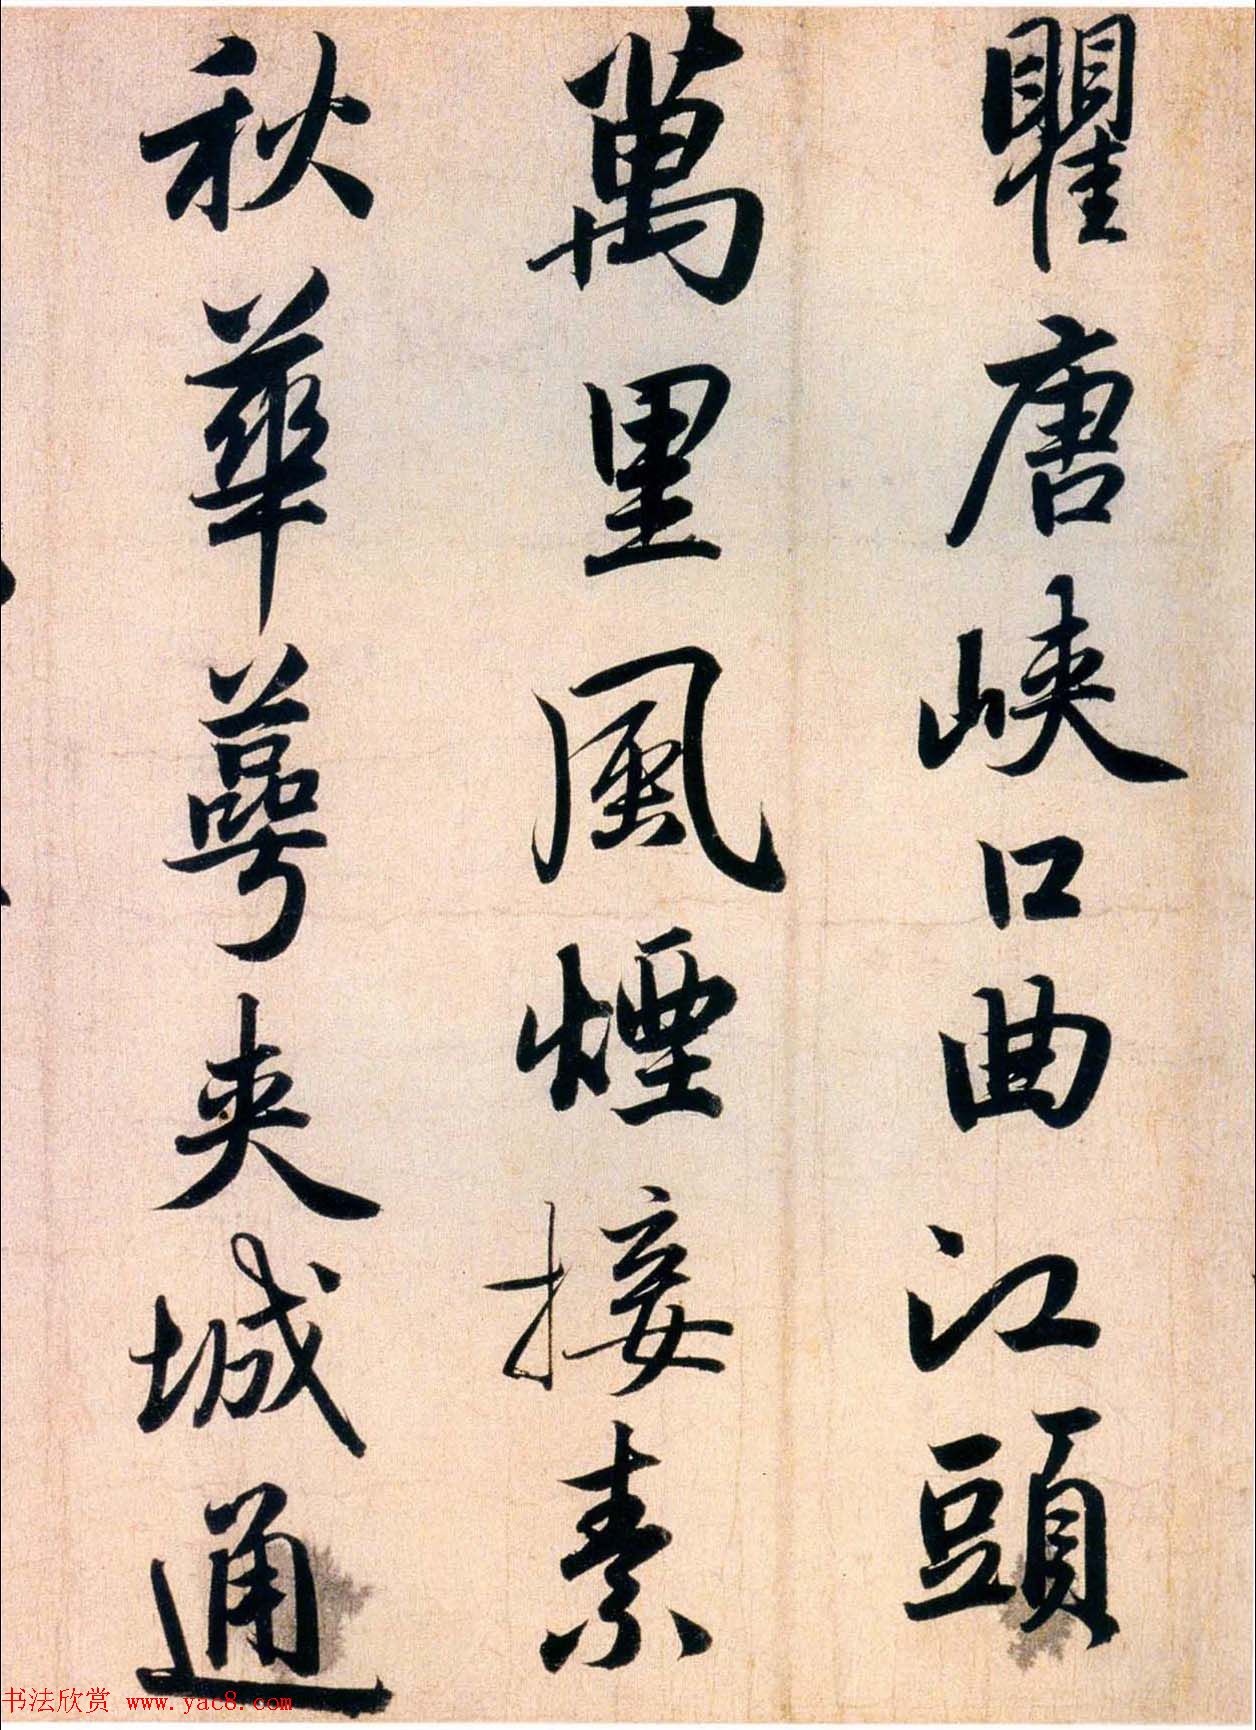 瞿唐峡口曲江頭
萬里風煙接素
秋華萼夹城通
书法欣赏 www.yac8.com